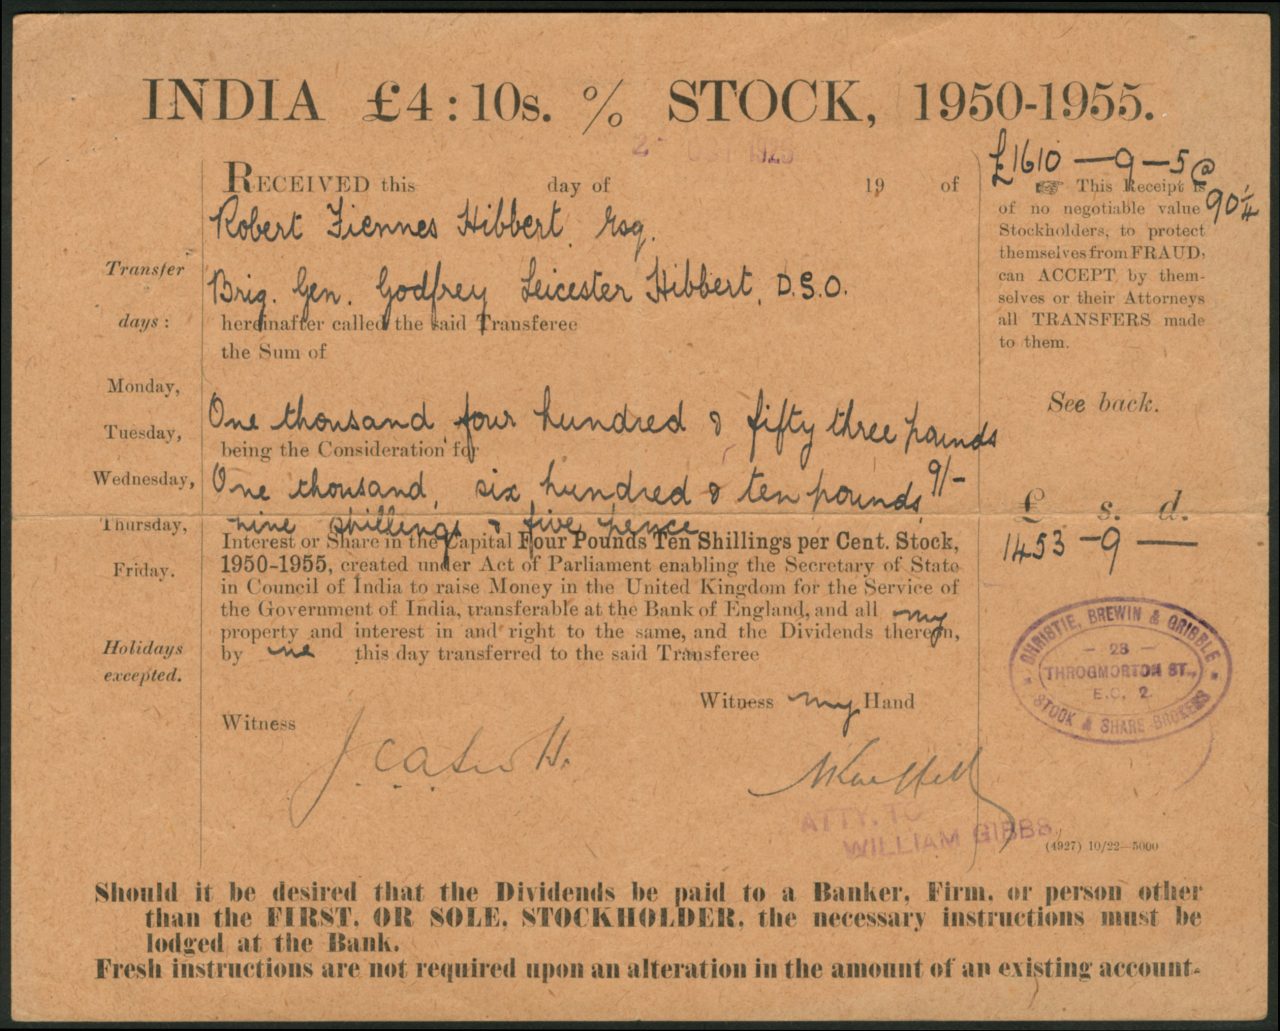 INDIA £4:10s. % STOCK, 1950-1955.
2 - OCT 1923
RECEIVED this day of 19 of
Robert Fiennes Hibbert Esq.
Brig. Gen. Godfrey Leicester Hibbert, D.S.O.
hereinafter called the said Transferee
the Sum of
One thousand four hundred & fifty three pounds
9/-
being the Consideration for
One thousand, six hundred & ten pounds
nine shillings & five pence
Interest or Share in the Capital Four Pounds Ten Shillings per Cent. Stock,
1950-1955, created under Act of Parliament enabling the Secretary of State
in Council of India to raise Money in the United Kingdom for the Service of
the Government of India, transferable at the Bank of England, and all my
property and interest in and right to the same, and the Dividends thereon,
by me this day transferred to the said Transferee
Witness my Hand
Witness
ATTY. TO
WILLIAM GIBBS
Transfer
days:
Monday,
Tuesday,
Wednesday,
Thursday,
Friday.
Holidays
excepted.
£1610 - 9 - 5 @
90 1/4
☞ This Receipt is
of no negotiable value
Stockholders, to protect
themselves from FRAUD,
can ACCEPT by them-
selves or their Attorneys
all TRANSFERS made
to them.
See back.
£ s. d.
1453 - 9 —
CHRISTIE, BREWIN & GRIBBLE
- 28 -
THROGMORTON ST.,
E.C. 2
STOCK & SHARE BROKERS
(4927) 10/22—5000
Should it be desired that the Dividends be paid to a Banker, Firm, or person other
than the FIRST, OR SOLE, STOCKHOLDER, the necessary instructions must be
lodged at the Bank.
Fresh instructions are not required upon an alteration in the amount of an existing account.